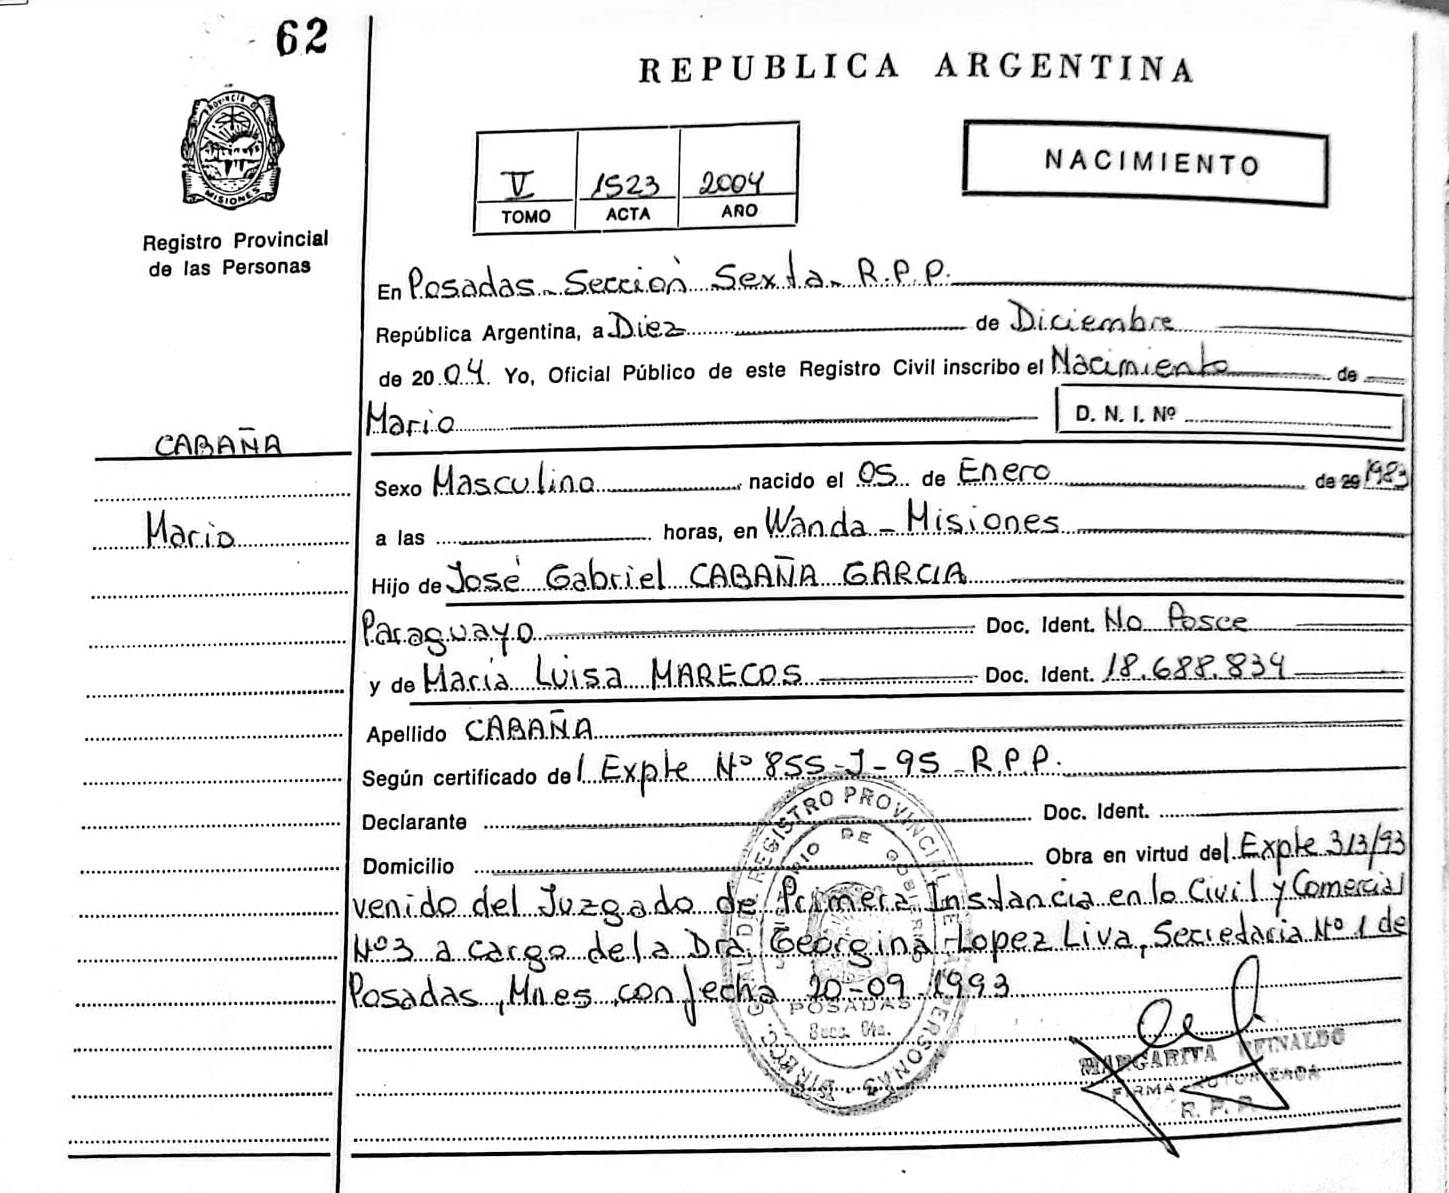 62
PROVINCIA D
MISIONES
Registro Provincial
de las Personas
REPUBLICA ARGENTINA
V 1523 2004
TOMO ACTA AÑO
NACIMIENTO
En Posadas - Sección Sexta - R.P.P.
República Argentina, a Diez de Diciembre
de 20 04. Yo, Oficial Público de este Registro Civil inscribo el Nacimiento de
Mario D. N. I. Nº
CABAÑA
Mario
Sexo Masculino nacido el 05 de Enero de 20 1983
a las horas, en Wanda - Misiones
Hijo de José Gabriel CABAÑA GARCIA
Paraguayo Doc. Ident. No Posee
y de María Luisa MARECOS Doc. Ident. 18.688.834
Apellido CABAÑA
Según certificado del Expte Nº 855-J-95 - R.P.P.
Declarante Doc. Ident.
Domicilio Obra en virtud del Expte 313/93
venido del Juzgado de Primera Instancia en lo Civil y Comercial
Nº3 a cargo de la Dra. Georgina Lopez Liva, Secretaria Nº 1 de
Posadas, Mnes con fecha 20-09-1993
REGISTRO PROVINCIAL DE PERSONAS
DE GOBIERNO
POSADAS
MARGARITA REINALDO
FIRMA AUTORIZADA
R. P. P.